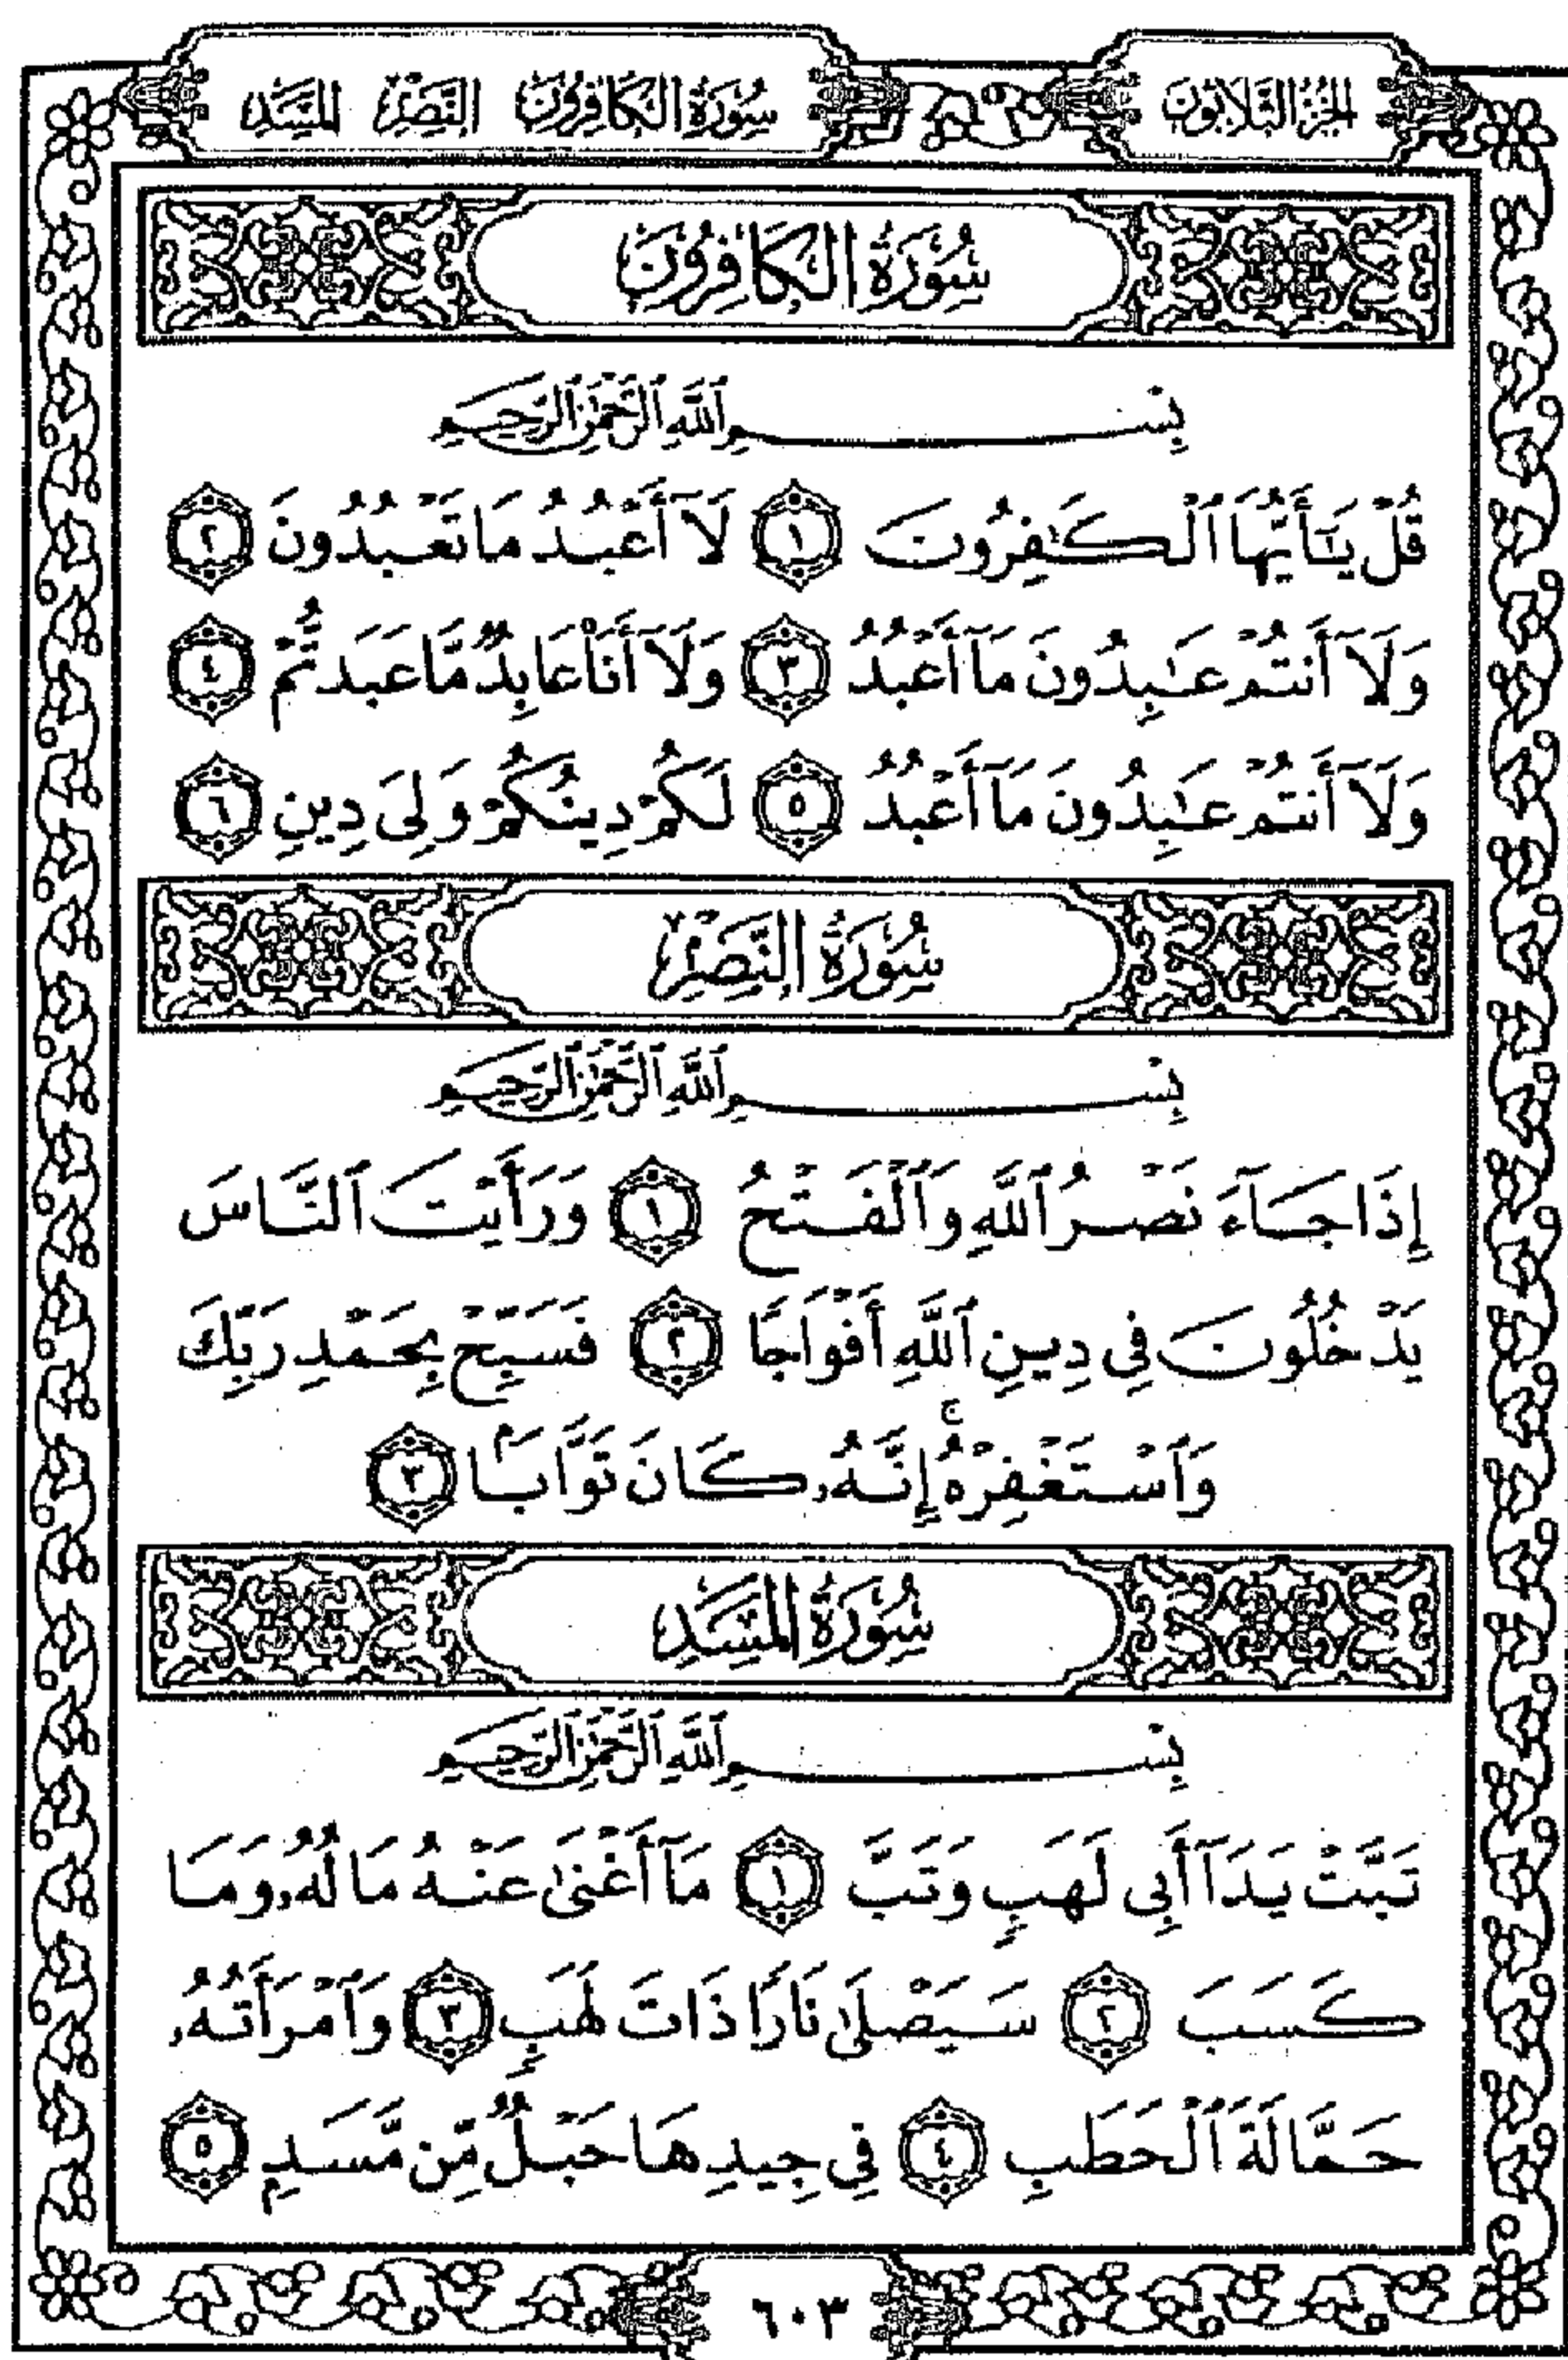 الجزء الثلاثون
سورة الكافرون النصر المسد
سُورَةُ الكَافِرُونَ
بِسْمِ ٱللَّهِ ٱلرَّحْمَٰنِ ٱلرَّحِيمِ
قُلْ يَـٰٓأَيُّهَا ٱلْكَـٰفِرُونَ ١ لَآ أَعْبُدُ مَا تَعْبُدُونَ ٢
وَلَآ أَنتُمْ عَـٰبِدُونَ مَآ أَعْبُدُ ٣ وَلَآ أَنَا۠ عَابِدٌ مَّا عَبَدتُّمْ ٤
وَلَآ أَنتُمْ عَـٰبِدُونَ مَآ أَعْبُدُ ٥ لَكُمْ دِينُكُمْ وَلِىَ دِينِ ٦
سُورَةُ النَّصْرِ
بِسْمِ ٱللَّهِ ٱلرَّحْمَٰنِ ٱلرَّحِيمِ
إِذَا جَآءَ نَصْرُ ٱللَّهِ وَٱلْفَتْحُ ١ وَرَأَيْتَ ٱلنَّاسَ
يَدْخُلُونَ فِى دِينِ ٱللَّهِ أَفْوَاجًا ٢ فَسَبِّحْ بِحَمْدِ رَبِّكَ
وَٱسْتَغْفِرْهُ ۚ إِنَّهُۥ كَانَ تَوَّابًۢا ٣
سُورَةُ المَسَدِ
بِسْمِ ٱللَّهِ ٱلرَّحْمَٰنِ ٱلرَّحِيمِ
تَبَّتْ يَدَآ أَبِى لَهَبٍ وَتَبَّ ١ مَآ أَغْنَىٰ عَنْهُ مَالُهُۥ وَمَا
كَسَبَ ٢ سَيَصْلَىٰ نَارًا ذَاتَ لَهَبٍ ٣ وَٱمْرَأَتُهُۥ
حَمَّالَةَ ٱلْحَطَبِ ٤ فِى جِيدِهَا حَبْلٌ مِّن مَّسَدٍۭ ٥
٦٠٣